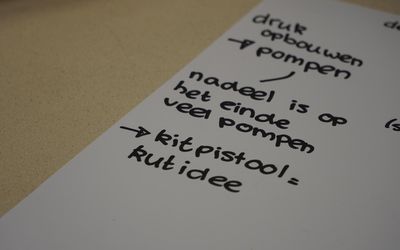 druk
opbouwen
→ pompen
nadeel is op
het einde
veel pompen
→ kitpistool =
kutidee